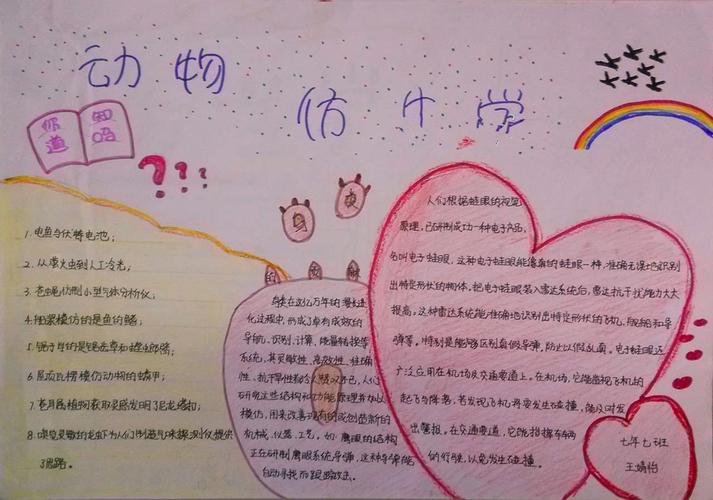 动物
仿生学
你知道吗
???
1.电鱼与伏特电池;
2.从萤火虫到人工冷光;
3.苍蝇仿制小型气体分析仪;
4.船桨模仿的是鱼的鳍;
5.锯子学的是
6.屋顶瓦楞模仿动物的鳞甲;
7.苍耳属植物获取灵感发明了尼龙搭扣;
8.嗅觉灵敏的龙虾为人们制造气味探测仪提供
了思路。
鸟类在近亿万年的漫长进
化过程中,形成了卓有成效的
导航、识别、计算、能量转换等
系统,其灵敏性、高效性、准确
性、抗干扰性
研究这些结构和功能原理并加以
模仿,用来改善现有的或创造新的
机械、仪器、工艺。如:鹰眼的结构
正在研制鹰眼系统导弹,这种导弹能
自动寻找而跟踪攻击。
人们根据蛙眼的视觉
原理,已研制成功一种电子产品,
名叫电子蛙眼。这种电子蛙眼能像真的蛙眼一样,准确无误地识别
出特定形状的物体。把电子蛙眼装入雷达系统后,雷达抗干扰能力大大
提高。这种雷达系统能准确地识别出特定形状的飞机、舰船和导
弹等。特别是能够区别真假导弹,防止以假乱真。电子蛙眼还
广泛应用在机场及交通要道上。在机场,它能监视飞机的
起飞与降落,若发现飞机将要发生碰撞,能及时发
出警报。在交通要道,它能指挥车辆
的行驶,以免发生碰撞。
七年七班
王婧怡